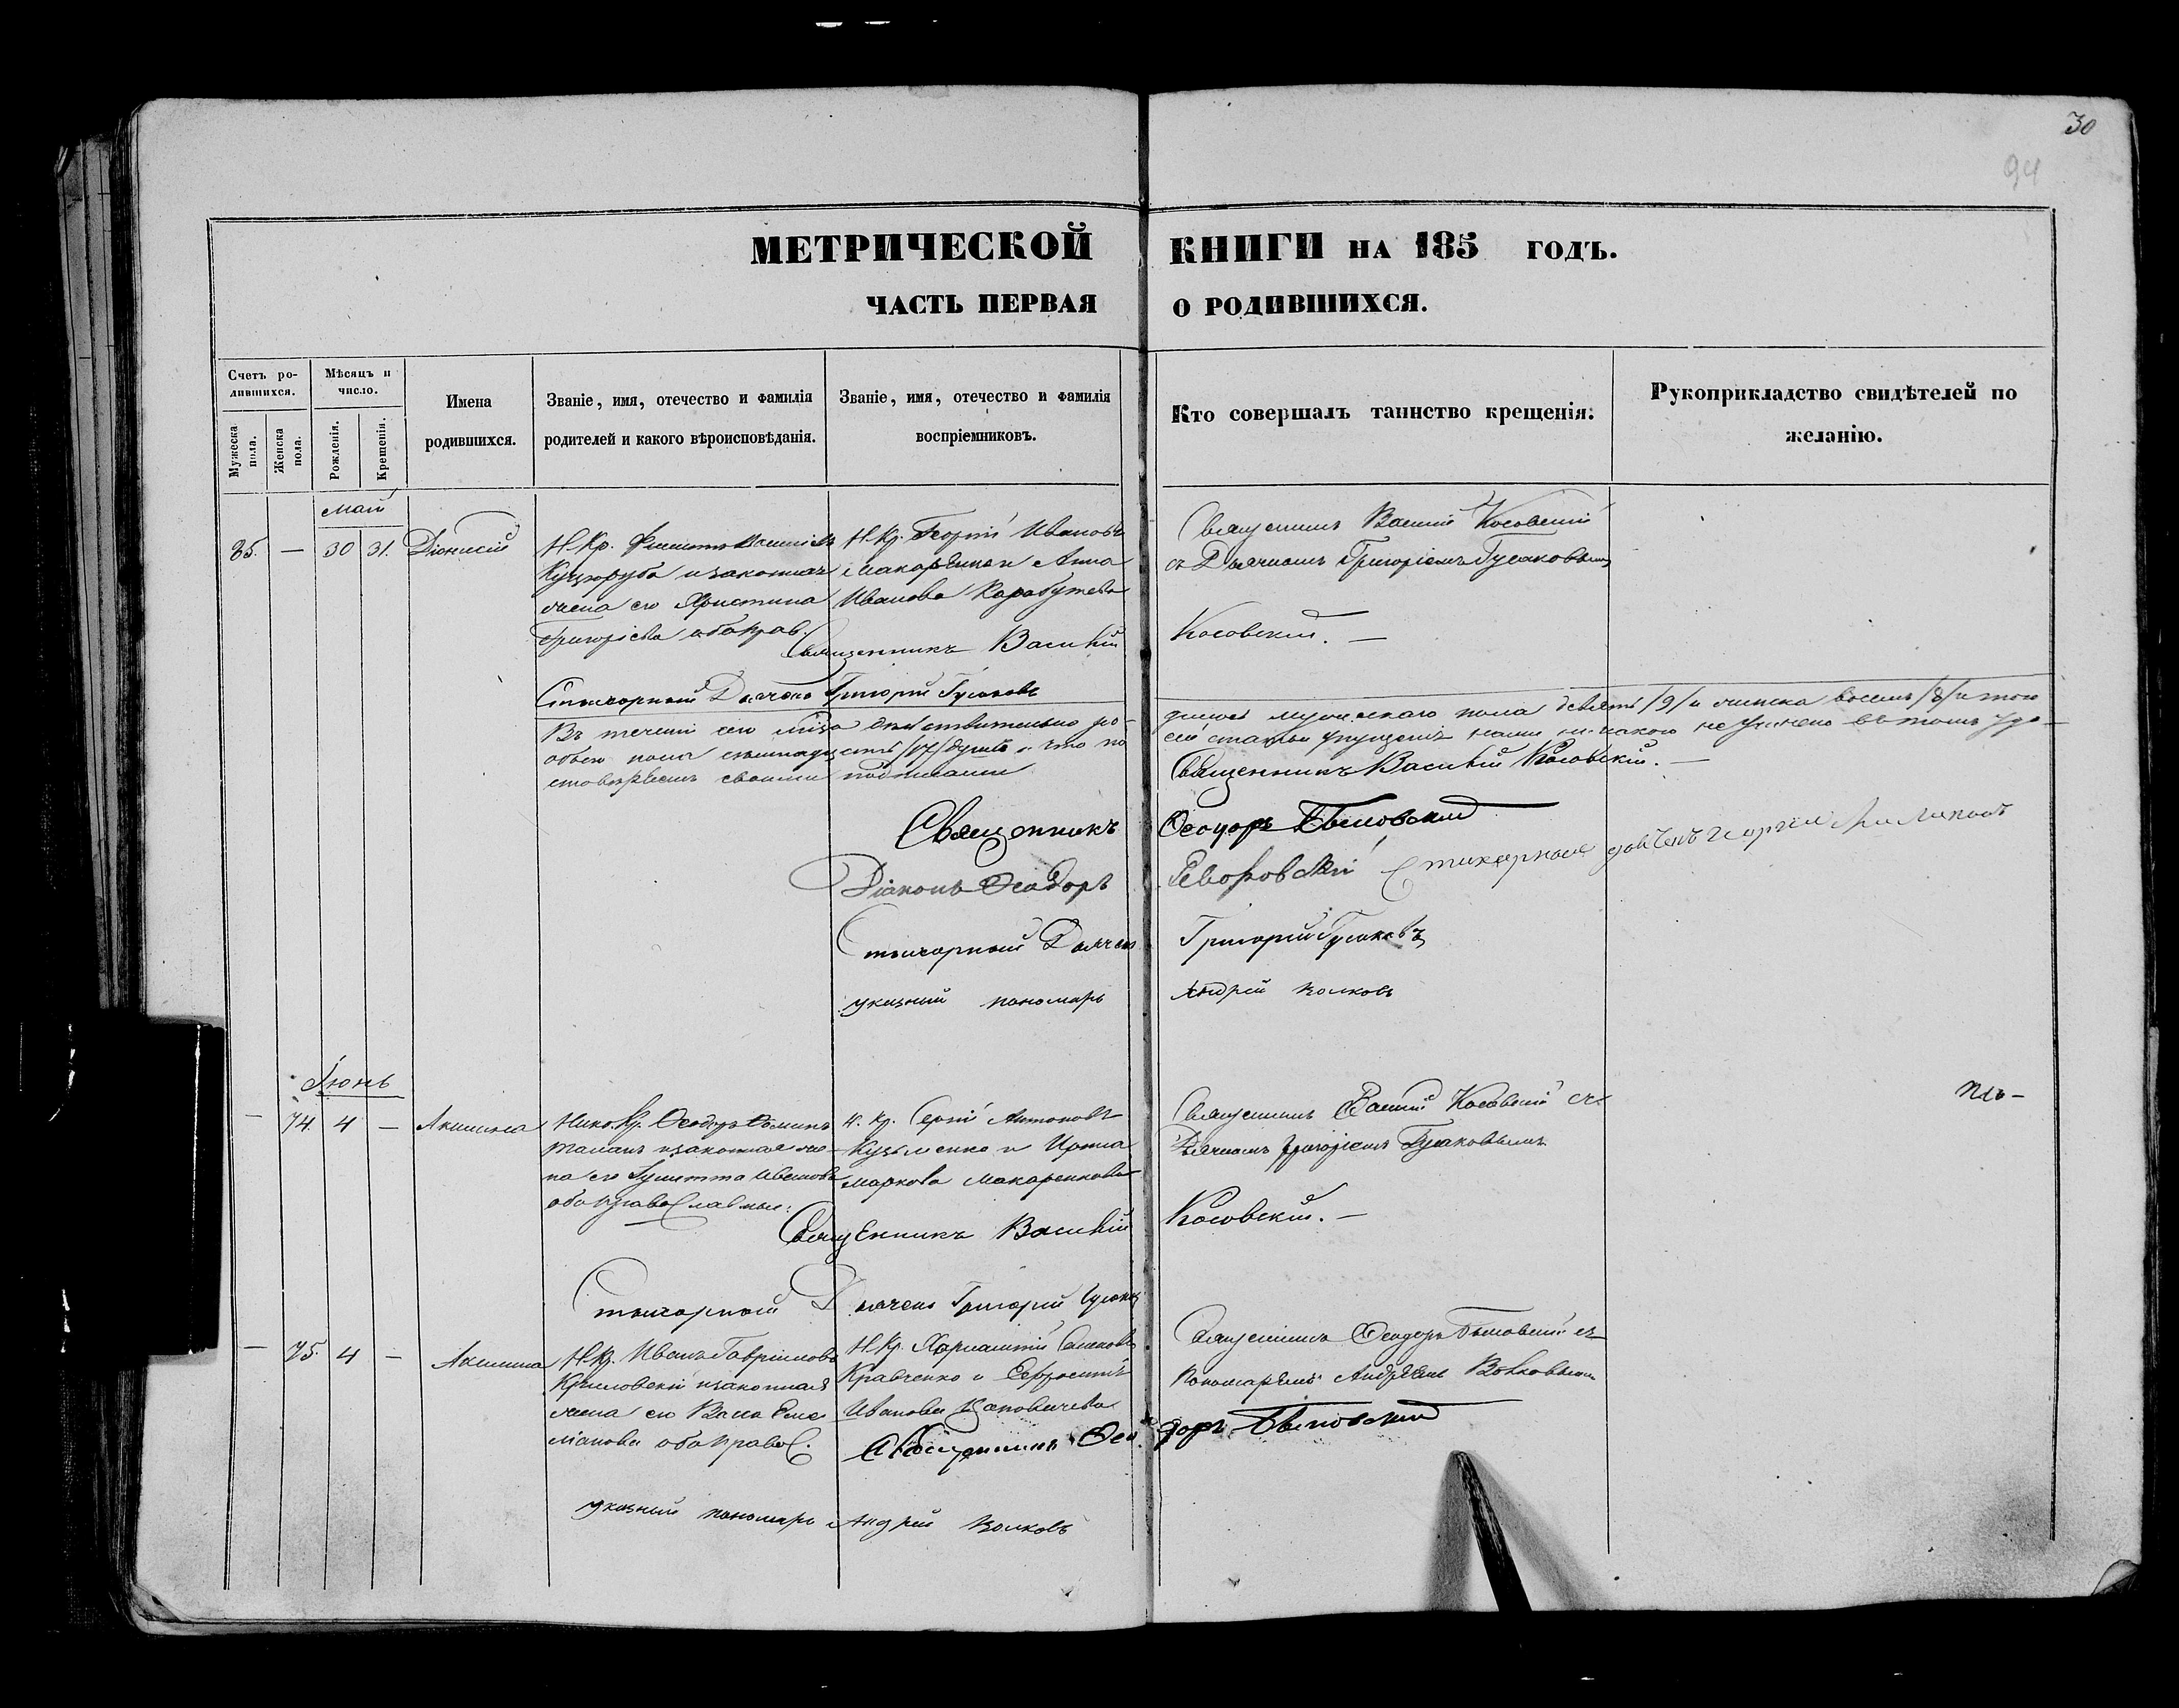 30
94
МЕТРИЧЕСКОЙ КНИГИ НА 185 ГОДЪ.
ЧАСТЬ ПЕРВАЯ О РОДИВШИХСЯ.
Счетъ ро-
дившихся.
Мужеска
пола.
Женска
пола.
Мѣсяцъ и
число.
Рожденія.
Крещенія.
Имена
родившихся.
Званіе, имя, отечество и фамилія
родителей и какого вѣроисповѣданія.
Званіе, имя, отечество и фамилія
воспріемниковъ.
Кто совершалъ таинство крещенія.
Рукоприкладство свидѣтелей по
желанію.
Май
85. — 30 31. Діонисій
Н. Кр.
и законная
жена его Христина
Григоріева оба прав.
Н. Кр. Георгій Ивановъ
Макаренко и Анна
Иванова
Священникъ Василій Косовскій
съ Дьячкомъ Григоріемъ Гусаковымъ
Священникъ Василій Косовскій. —
Стихарный Дьячекъ Григорій Гусаковъ
Въ теченіи сего мѣсяца дѣйствительно ро-
дилось мужескаго пола девять /9/ и женска восемь /8/ и того
обоего пола семнадцать /17/ душъ и что по
сей статьи упущенія нами никакого не учинено въ томъ удо-
стовѣряемъ своими подписами
Священникъ Василій Косовскій. —
Священникъ Ѳеодоръ
Діаконъ Ѳеодоръ
Стихарный
Стихарный Дьячекъ Григорій Гусаковъ
указный пономарь Андрей Волковъ
Іюнь
— 74. 4 — Акилина
Нико. Кр. Ѳеодоръ Ѳоминъ
и законная же-
на его Іулитта Иванова
оба православные.
Н. Кр. Сергій Антоновъ
Кузьменко и Ирина
Маркова Макаренкова
Священникъ Василій Косовскій съ
Дьячкомъ Григоріемъ Гусаковымъ
Священникъ Василій Косовскій. —
Стихарный Дьячекъ Григорій Гусаковъ
— 75. 4 — Акилина
Н. Кр. Иванъ Гавріиловъ
и законная
жена его Васса Еме-
ліанова оба правос.
Н. Кр. Харлампій
Кравченко и Евфросинія
Иванова
Священникъ Ѳеодоръ съ
Пономаремъ Андреемъ Волковымъ
Священникъ Ѳеодоръ
указный пономарь Андрей Волковъ